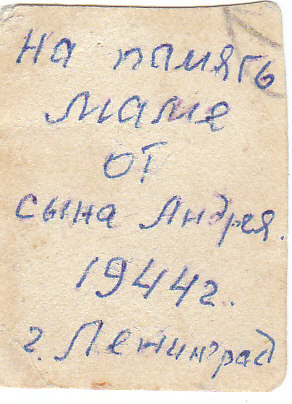 на память
маме
от
сына Андрея.
1944г..
г. Ленинград